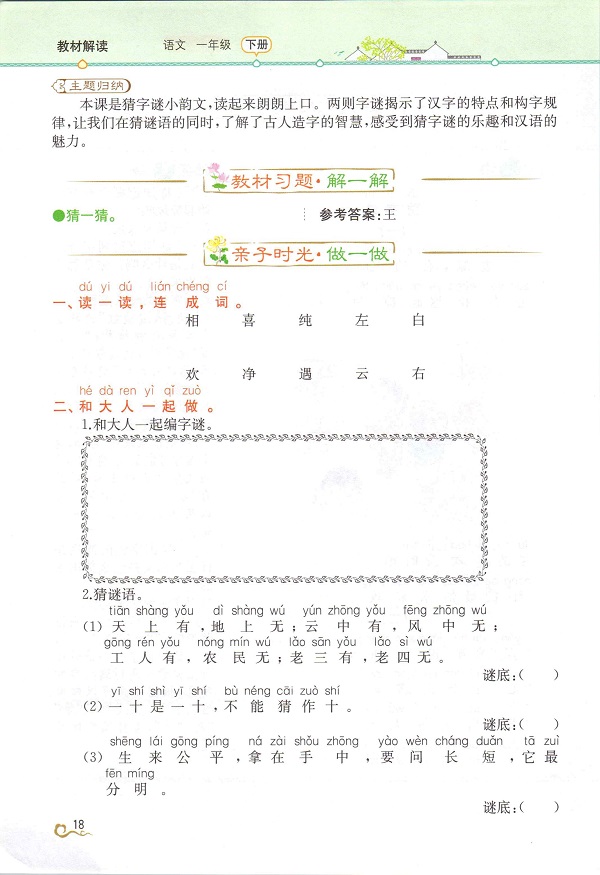 教材解读 语文 一年级 下册
主题归纳
本课是猜字谜小韵文,读起来朗朗上口。两则字谜揭示了汉字的特点和构字规
律,让我们在猜谜语的同时,了解了古人造字的智慧,感受到猜字谜的乐趣和汉语的
魅力。
教材习题·解一解
●猜一猜。 参考答案:王
亲子时光·做一做
dú yi dú lián chéng cí
一、读一读,连成词。
相 喜 纯 左 白
欢 净 遇 云 右
hé dà ren yì qǐ zuò
二、和大人一起做。
1.和大人一起编字谜。
2.猜谜语。
tiān shàng yǒu dì shàng wú yún zhōng yǒu fēng zhōng wú
(1)天上有,地上无;云中有,风中无;
gōng rén yǒu nóng mín wú lǎo sān yǒu lǎo sì wú
工人有,农民无;老三有,老四无。
谜底:( )
yī shí shì yī shí bù néng cāi zuò shí
(2)一十是一十,不能猜作十。
谜底:( )
shēng lái gōng píng ná zài shǒu zhōng yào wèn cháng duǎn tā zuì
(3)生来公平,拿在手中,要问长短,它最
fēn míng
分明。
谜底:( )
18